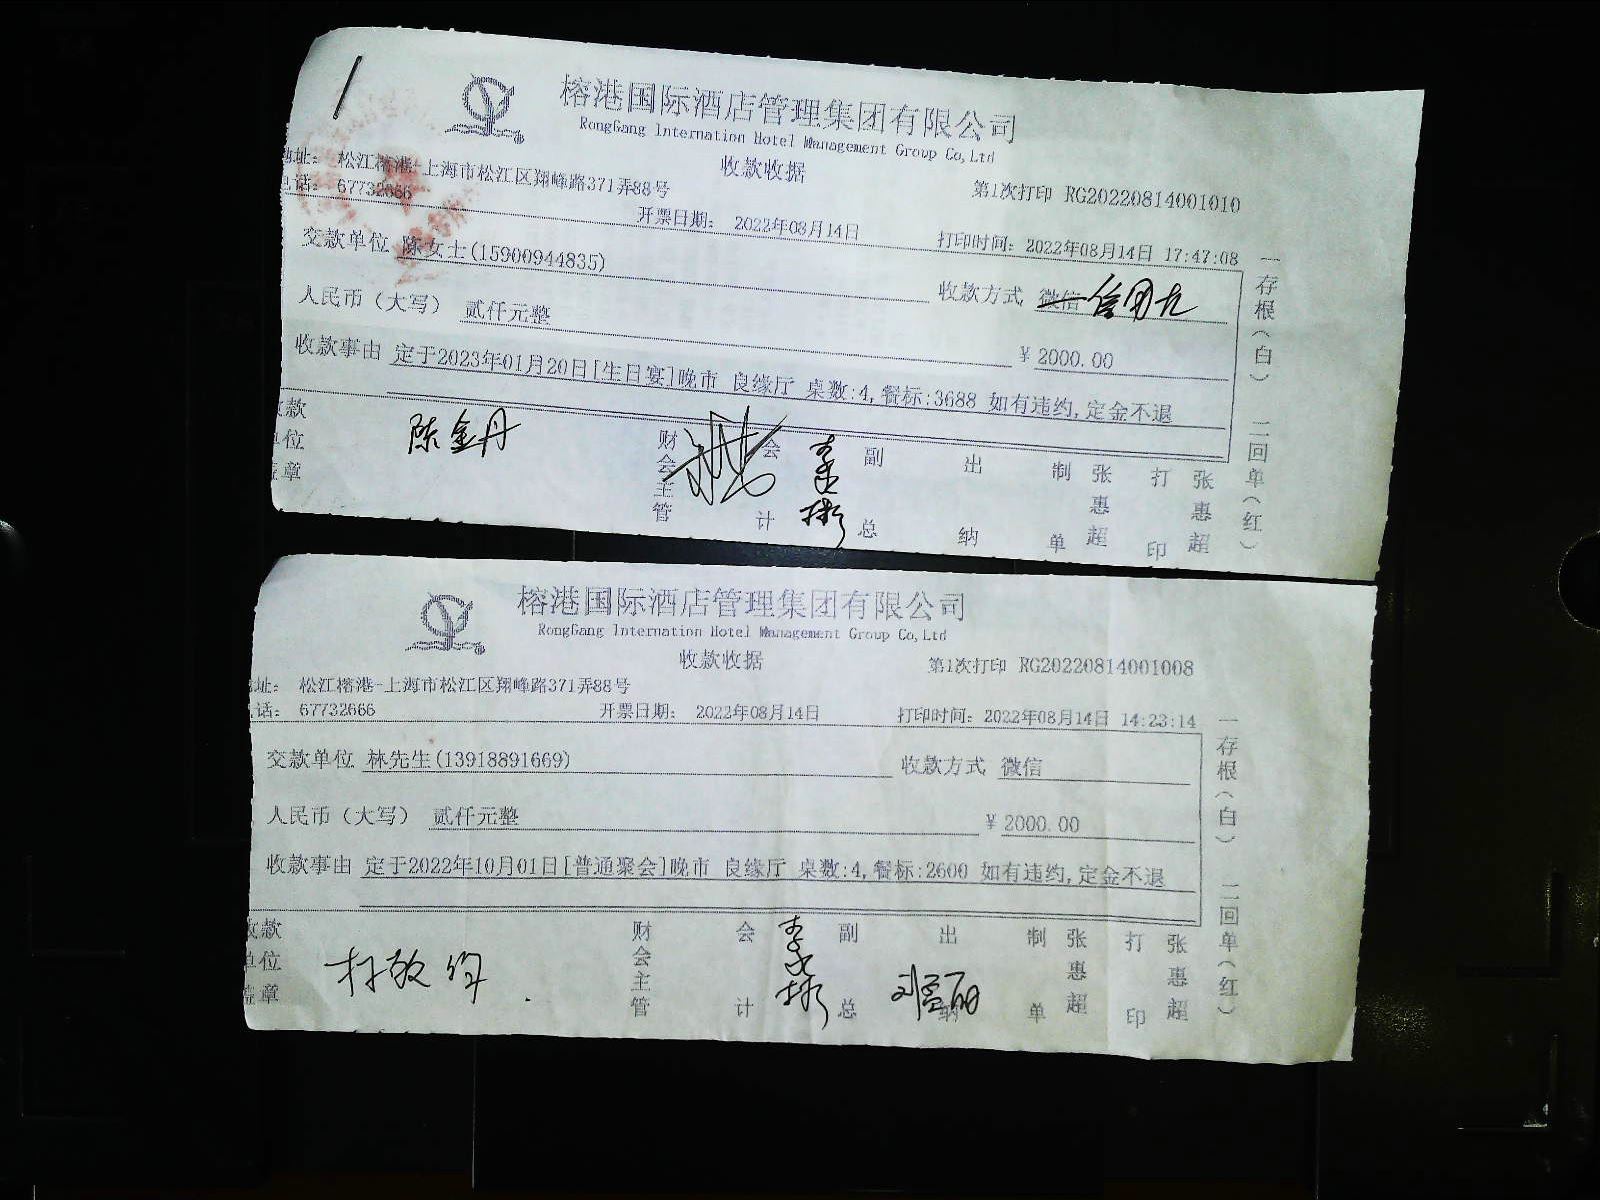 榕港国际酒店管理集团有限公司
RongGang Internation Hotel Management Group Co,Ltd
收款收据
地址： 松江榕港-上海市松江区翔峰路371弄88号
第1次打印 RG20220814001010
电话： 67732666
开票日期： 2022年08月14日
打印时间：2022年08月14日 17:47:08
交款单位 陈女士(15900944835)
收款方式 微信 信用卡
人民币（大写） 贰仟元整
￥2000.00
收款事由 定于2023年01月20日[生日宴]晚市 良缘厅 桌数:4,餐标:3688 如有违约,定金不退
收款单位盖章
陈金丹
财会主管
会计
李彬
副总
出纳
制单
张惠超
打印
张惠超
一存根（白） 二回单（红）
榕港国际酒店管理集团有限公司
RongGang Internation Hotel Management Group Co,Ltd
收款收据
第1次打印 RG20220814001008
地址： 松江榕港-上海市松江区翔峰路371弄88号
电话： 67732666
开票日期： 2022年08月14日
打印时间：2022年08月14日 14:23:14
交款单位 林先生(13918891669)
收款方式 微信
人民币（大写） 贰仟元整
￥2000.00
收款事由 定于2022年10月01日[普通聚会]晚市 良缘厅 桌数:4,餐标:2600 如有违约,定金不退
收款单位盖章
财会主管
会计
李彬
副总
出纳
制单
张惠超
打印
张惠超
一存根（白） 二回单（红）